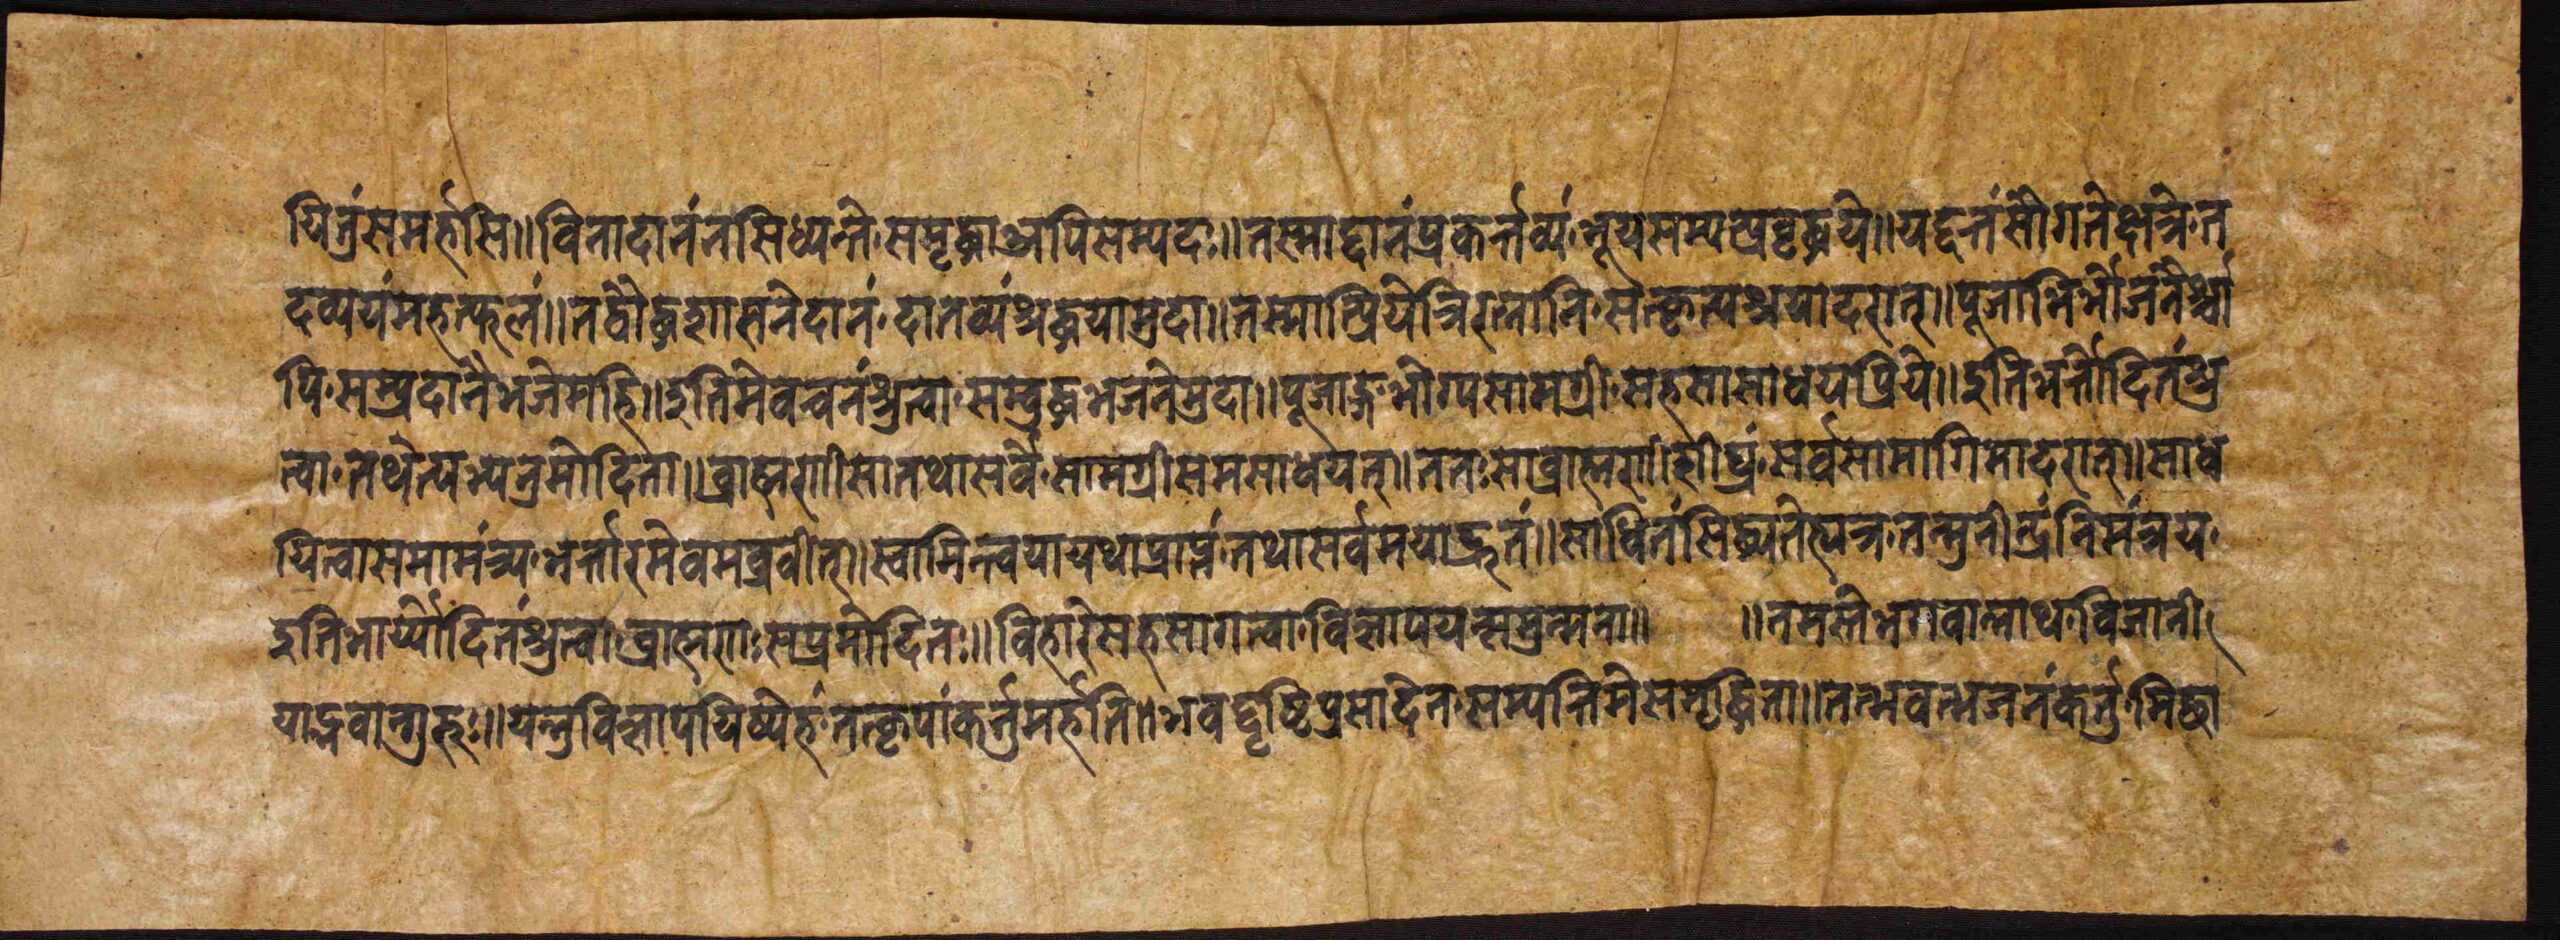 यितुं समर्हसि॥ विना दानं न सिध्यन्ते, समृद्धा अपि सम्पदः॥ तस्माद्दानं प्रकर्त्तव्यं, भूय सम्पत्प्रवृद्धये॥ यद्दत्तं सौगते क्षत्रे, त
दव्ययं महत्फलं॥ तद्बौद्धशासने दानं, दातव्यं श्रद्धया मुदा॥ तस्मात्प्रिये त्रिरत्नानि, सत्कृत्य श्रयादरात्॥ पूजाभिर्भोजनैश्चा
पि, सम्प्रदानै भजेमहि॥ इति मे वचनं श्रुत्वा, सम्बुद्धभजने मुदा॥ पूजाङ्गभोग्यसामग्री, सहसा साधय प्रिये॥ इति भर्त्रोदितं श्रु
त्वा, तथेत्यभ्यनुमोदिता॥ ब्राह्मणी सा तथा सर्व्व, सामग्री समसाधयत्॥ ततः सा ब्राह्मणी शीघ्रं, सर्वसामागिमादरात्॥ साध
यित्वा समामंत्र्य, भर्त्तारमेवमब्रवीत्॥ स्वामिन्त्वया यथा प्राप्तं, तथा सर्वं मयाद्धृतं॥ साधितं सिद्ध्यतेत्यत्र, तन्मुनीन्द्रं निमंत्रय,
इति भार्य्योदितं श्रुत्वा, ब्राह्मणः सप्रमोदितः॥ विहारे सहसा गत्वा, विज्ञापयत्समुन्मना॥ ॥ नमस्ते भगवान्नाथ, विजानी
याद्भवान्गुरुः॥ यत्तु विज्ञापयिष्येहं, तत्कृपां कर्त्तुमर्हति॥ भवद्दृष्टिप्रसादेन, सम्पत्ति मे समृद्धिता॥ तत्भवत्भजनं कर्त्तु,मिच्छा